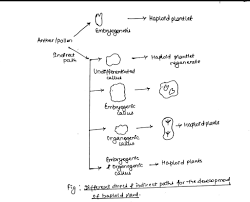 Haploid plantlet
Embryogenesis
Anther/pollen
Indirect
path
Haploid plantlet
regenerate
Undifferentiated
callus
Embryogenic
callus
Organogenic
callus
Haploid plants
Embryogenic
& Organogenic
callus
Haploid plants
Fig : Different direct & indirect paths for the development
of haploid plant.